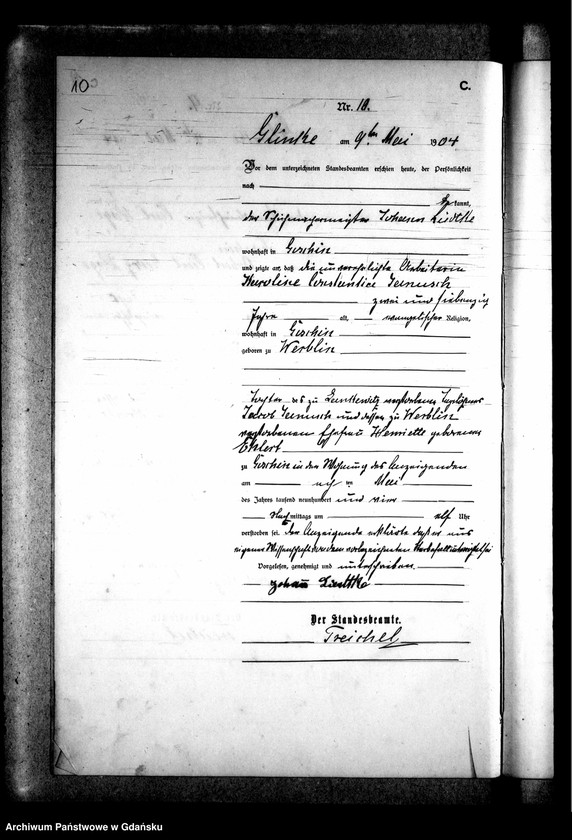 10
C.
Nr. 10.
Glinke am 9ten Mai 1904
Vor dem unterzeichneten Standesbeamten erschien heute, der Persönlichkeit
nach
kannt,
der Schuhmachermeister Johann
wohnhaft in Goschin
und zeigte an, daß die unverehelichte Arbeiterin
Karoline Constantine
zwei und siebenzig
Jahre alt, evangelischer Religion,
wohnhaft in Goschin
geboren zu Werblin
Tochter des zu verstorbenen
Jacob und dessen zu Werblin
verstorbenen Ehefrau Henriette geborenen
Ehlert
zu Goschin in der Wohnung des Anzeigenden
am ten Mai
des Jahres tausend neunhundert und vier
Nachmittags um elf Uhr
verstorben sei. Der Anzeigende erklärte daß er aus
eigener Wissenschaft von dem vorbezeichneten Sterbefall unterrichtet sei
Vorgelesen, genehmigt und unterschrieben
Johann
Der Standesbeamte.
Treichel
Archiwum Państwowe w Gdańsku